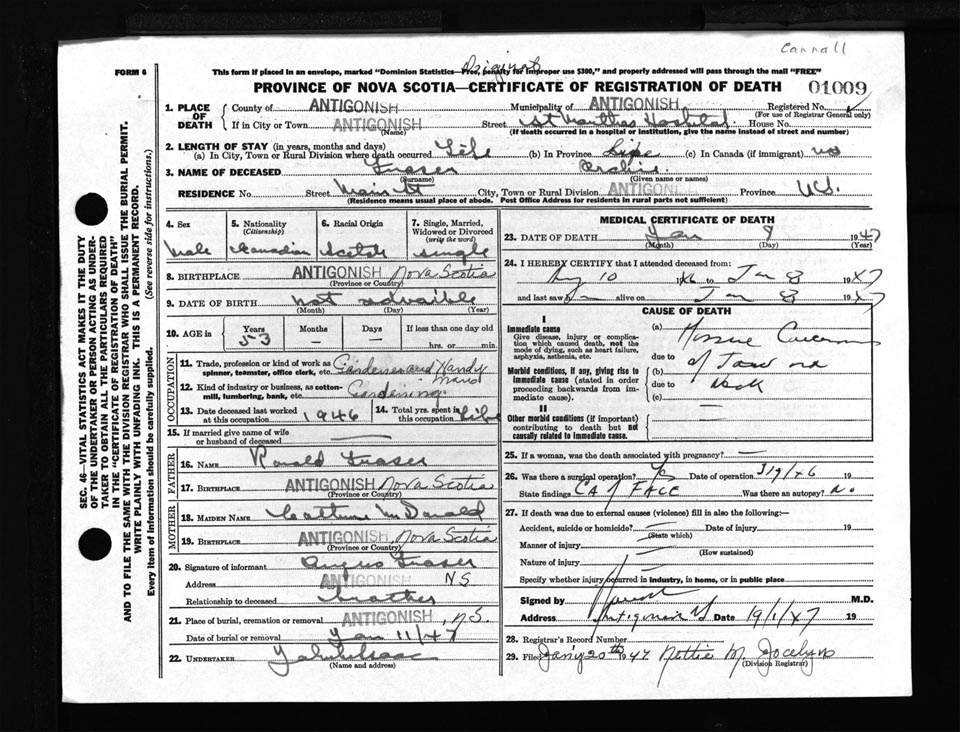 Cannall
FORM 6
This form if placed in an envelope, marked "Dominion Statistics—Free, penalty for improper use $300," and properly addressed will pass through the mail "FREE"
PROVINCE OF NOVA SCOTIA—CERTIFICATE OF REGISTRATION OF DEATH 01009
1. PLACE OF DEATH County of ANTIGONISH Municipality of ANTIGONISH Registered No.
(For use of Registrar General only)
If in City or Town ANTIGONISH Street St Marthas Hospital House No.
(Name) (If death occurred in a hospital or institution, give the name instead of street and number)
2. LENGTH OF STAY (in years, months and days)
(a) In City, Town or Rural Division where death occurred Life (b) In Province Life (c) In Canada (if immigrant) no
3. NAME OF DECEASED Fraser Archie
(Surname) (Given name or names)
RESIDENCE No. Street Main St City, Town or Rural Division ANTIGONISH Province N.S.
(Residence means usual place of abode. Post Office Address for residents in rural parts not sufficient)
4. Sex Male
5. Nationality (Citizenship) Canadian
6. Racial Origin Scotch
7. Single, Married, Widowed or Divorced (write the word) Single
8. BIRTHPLACE ANTIGONISH Nova Scotia
(Province or Country)
9. DATE OF BIRTH not
(Month) (Day) (Year)
10. AGE in Years 53 Months — Days — If less than one day old
hrs. or min.
OCCUPATION
11. Trade, profession or kind of work as spinner, teamster, office clerk, etc. Gardener and Handy man
12. Kind of industry or business, as cotton-mill, lumbering, bank, etc. Gardening
13. Date deceased last worked at this occupation 1946 14. Total yrs. spent in this occupation Life
15. If married give name of wife or husband of deceased —
FATHER
16. NAME Ronald Fraser
17. BIRTHPLACE ANTIGONISH Nova Scotia
(Province or Country)
MOTHER
18. MAIDEN NAME Catherine McDonald
19. BIRTHPLACE ANTIGONISH Nova Scotia
(Province or Country)
20. Signature of informant Angus Fraser
Address ANTIGONISH N.S.
Relationship to deceased brother
21. Place of burial, cremation or removal ANTIGONISH, N.S.
Date of burial or removal Jan 11/47
22. UNDERTAKER
(Name and address)
MEDICAL CERTIFICATE OF DEATH
23. DATE OF DEATH Jan 8 1947
(Month) (Day) (Year)
24. I HEREBY CERTIFY that I attended deceased from:
Aug 10 1946 to Jan 8 1947
and last saw him alive on Jan 8 1947
CAUSE OF DEATH
I
Immediate cause
Give disease, injury or complication which caused death, not the mode of dying, such as heart failure, asphyxia, asthenia, etc.
(a) Massive
due to
Morbid conditions, if any, giving rise to immediate cause (stated in order proceeding backwards from immediate cause).
(b) of Jaw and
due to Neck
(c) —
II
Other morbid conditions (if important) contributing to death but not causally related to immediate cause.
25. If a woman, was the death associated with pregnancy? —
26. Was there a surgical operation? Yes Date of operation 3/9/46 19
State findings CA of FACE Was there an autopsy? no
27. If death was due to external causes (violence) fill in also the following:—
Accident, suicide or homicide? — Date of injury 19
(State which)
Manner of injury
(How sustained)
Nature of injury
Specify whether injury occurred in industry, in home, or in public place
Signed by M.D.
Address Antigonish Date 19/1/47 19
28. Registrar's Record Number
29. Filed Jan'y 20th 1947 Nettie M. Jocelyn
(Division Registrar)
SEC. 46—VITAL STATISTICS ACT MAKES IT THE DUTY
OF THE UNDERTAKER OR PERSON ACTING AS UNDER-
TAKER TO OBTAIN ALL THE PARTICULARS REQUIRED
IN THE "CERTIFICATE OF REGISTRATION OF DEATH"
AND TO FILE THE SAME WITH THE DIVISION REGISTRAR WHO SHALL ISSUE THE BURIAL PERMIT.
WRITE PLAINLY WITH UNFADING INK. THIS IS A PERMANENT RECORD.
Every item of information should be carefully supplied. (See reverse side for instructions.)